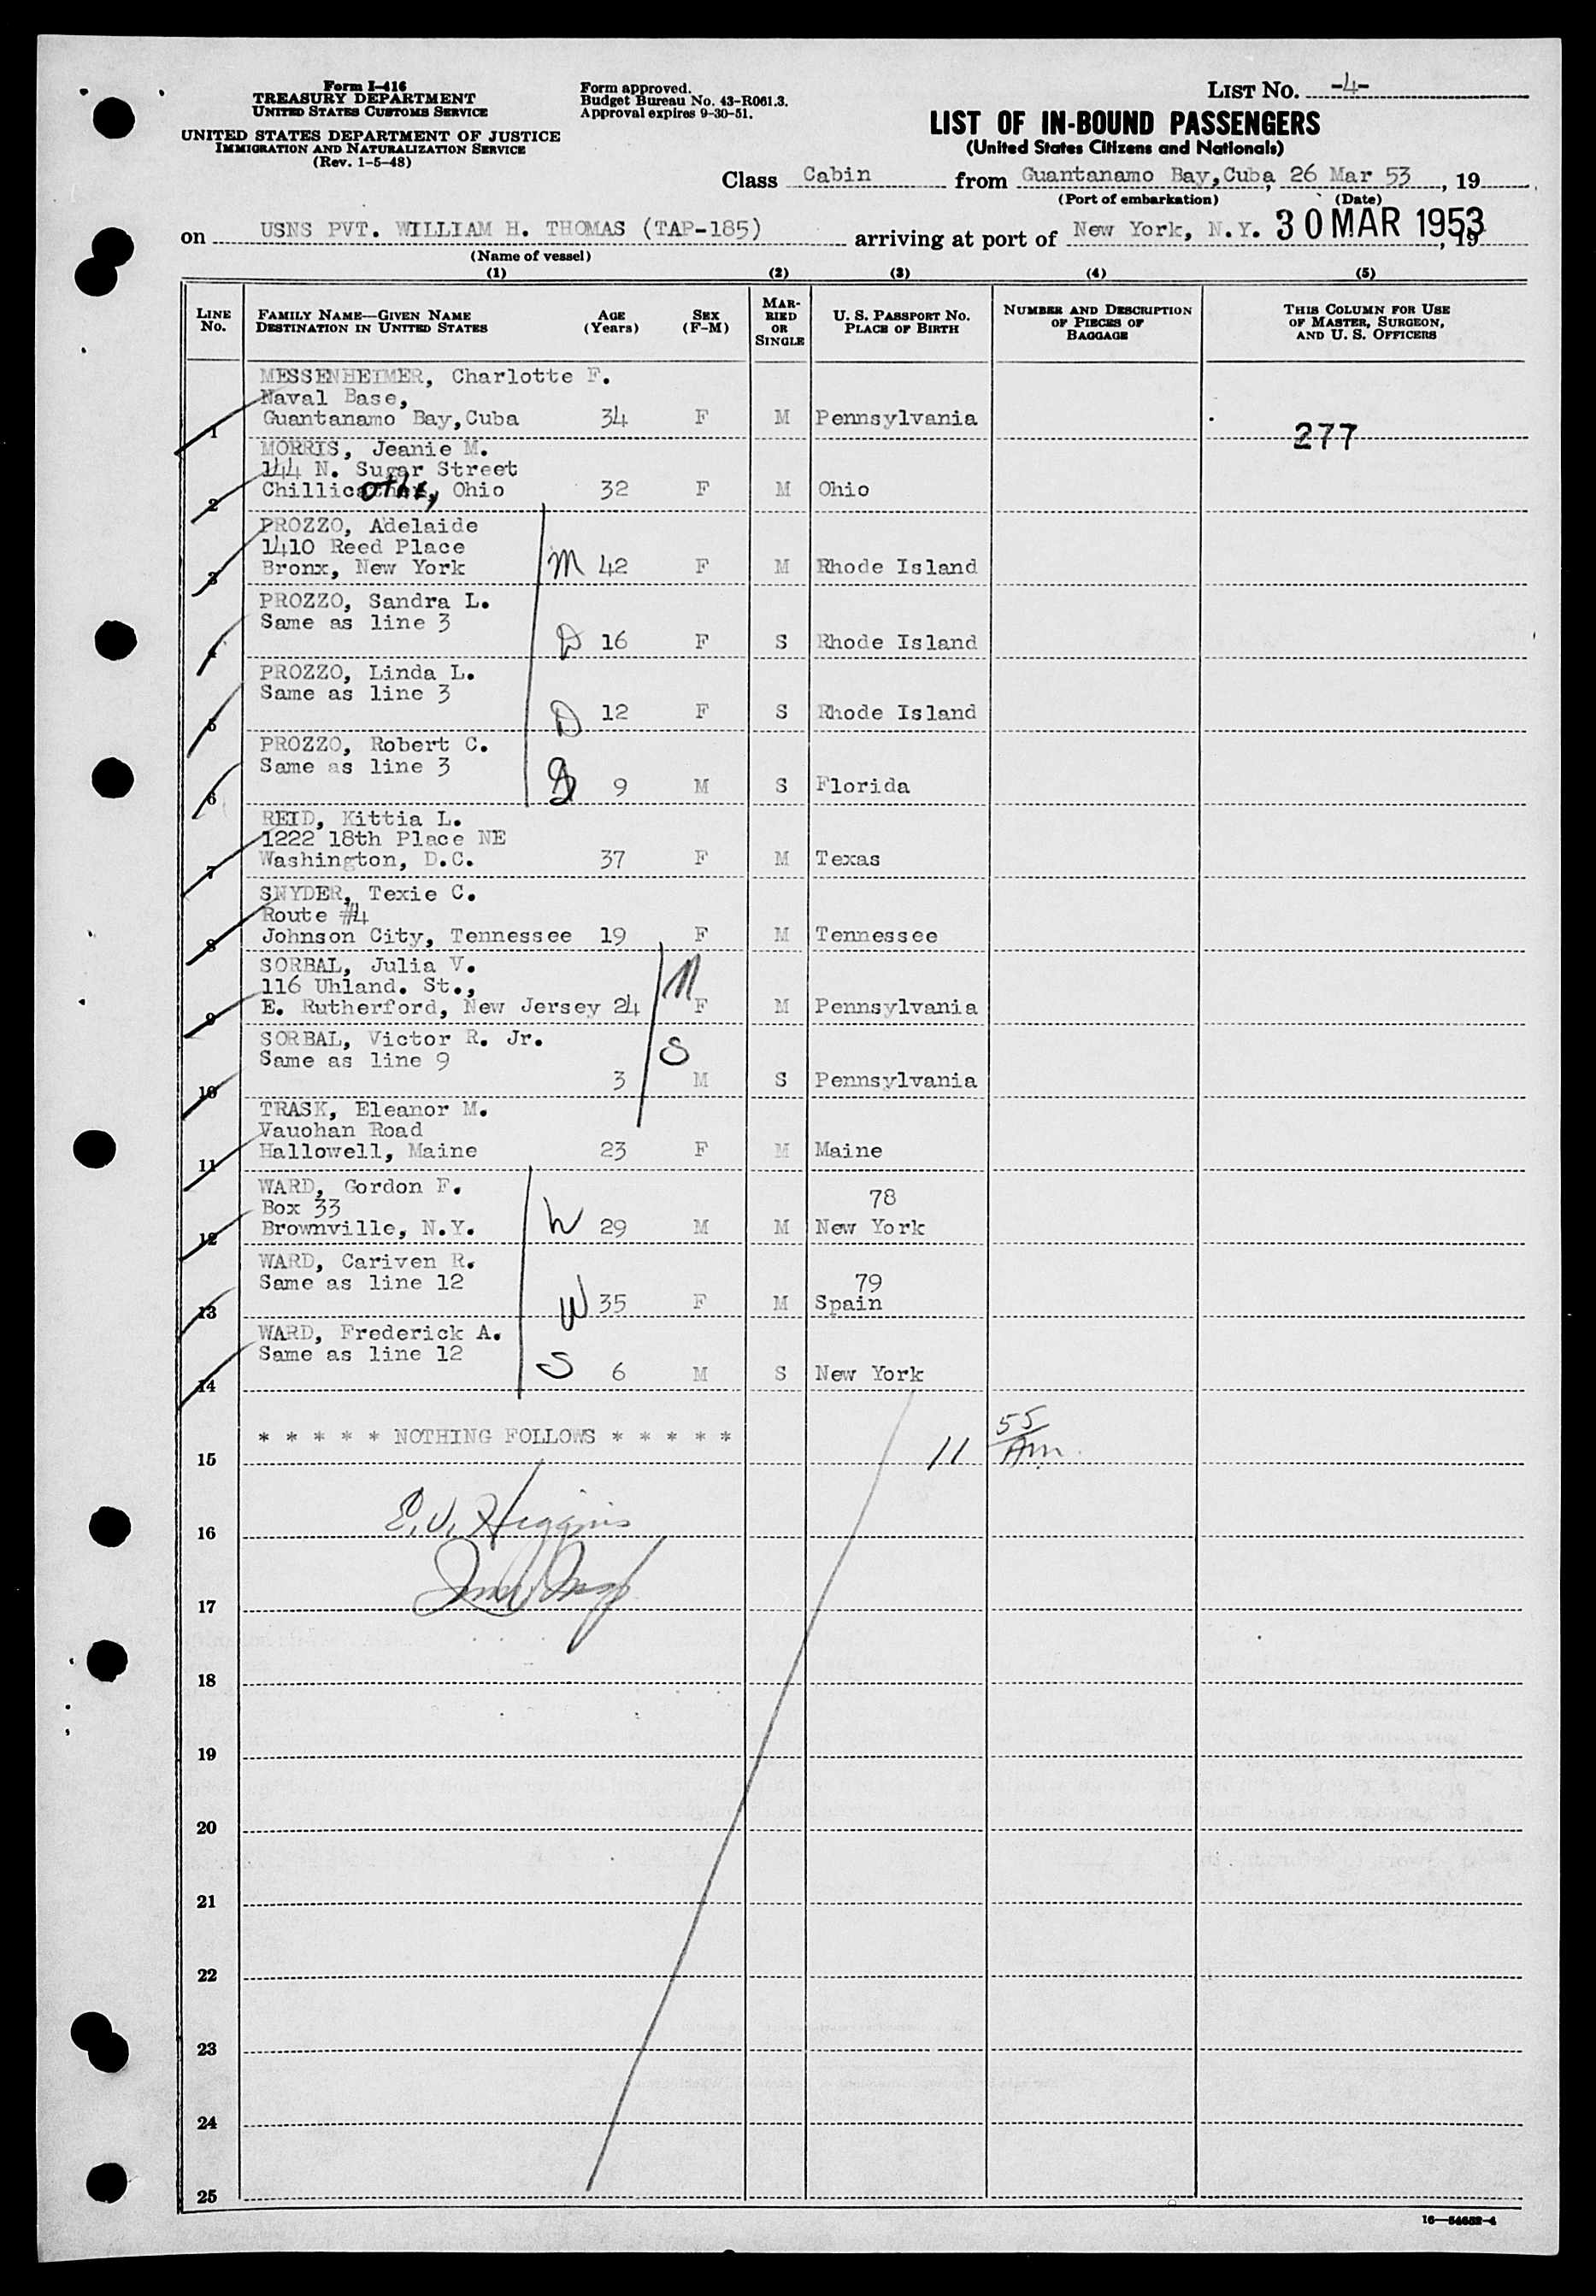 Form I-416
TREASURY DEPARTMENT
UNITED STATES CUSTOMS SERVICE
UNITED STATES DEPARTMENT OF JUSTICE
IMMIGRATION AND NATURALIZATION SERVICE
(Rev. 1-5-48)
Form approved.
Budget Bureau No. 43-R061.3.
Approval expires 9-30-51.
LIST No. -4-
LIST OF IN-BOUND PASSENGERS
(United States Citizens and Nationals)
Class Cabin from Guantanamo Bay,Cuba, 26 Mar 53, 19
(Port of embarkation) (Date)
on USNS PVT. WILLIAM H. THOMAS (TAP-185) arriving at port of New York, N.Y. 30 MAR 1953, 19
(Name of vessel)
(1) (2) (3) (4) (5)
LINE No.
FAMILY NAME—GIVEN NAME
DESTINATION IN UNITED STATES
AGE (Years)
SEX (F-M)
MARRIED OR SINGLE
U. S. PASSPORT No.
PLACE OF BIRTH
NUMBER AND DESCRIPTION OF PIECES OF BAGGAGE
THIS COLUMN FOR USE OF MASTER, SURGEON, AND U. S. OFFICERS
MESSENHEIMER, Charlotte F.
Naval Base,
1 Guantanamo Bay,Cuba 34 F M Pennsylvania
277
MORRIS, Jeanie M.
144 N. Sugar Street
2 Chillicothe, Ohio 32 F M Ohio
PROZZO, Adelaide
1410 Reed Place
3 Bronx, New York M 42 F M Rhode Island
PROZZO, Sandra L.
Same as line 3
4 D 16 F S Rhode Island
PROZZO, Linda L.
Same as line 3
5 D 12 F S Rhode Island
PROZZO, Robert C.
Same as line 3
6 9 M S Florida
REID, Kittia L.
1222 18th Place NE
7 Washington, D.C. 37 F M Texas
SNYDER, Texie C.
Route #4
8 Johnson City, Tennessee 19 F M Tennessee
SORBAL, Julia V.
116 Uhland. St.,
9 E. Rutherford, New Jersey 24 M F M Pennsylvania
SORBAL, Victor R. Jr.
Same as line 9 S
10 3 M S Pennsylvania
TRASK, Eleanor M.
Vauohan Road
11 Hallowell, Maine 23 F M Maine
WARD, Gordon F.
Box 33 78
12 Brownville, N.Y. h 29 M M New York
WARD, Cariven R.
Same as line 12 79
13 W 35 F M Spain
WARD, Frederick A.
Same as line 12
14 S 6 M S New York
* * * * * NOTHING FOLLOWS * * * * *
15 11 55 AM
16 E.V. Higgins
17
18
19
20
21
22
23
24
25
16—54652-4